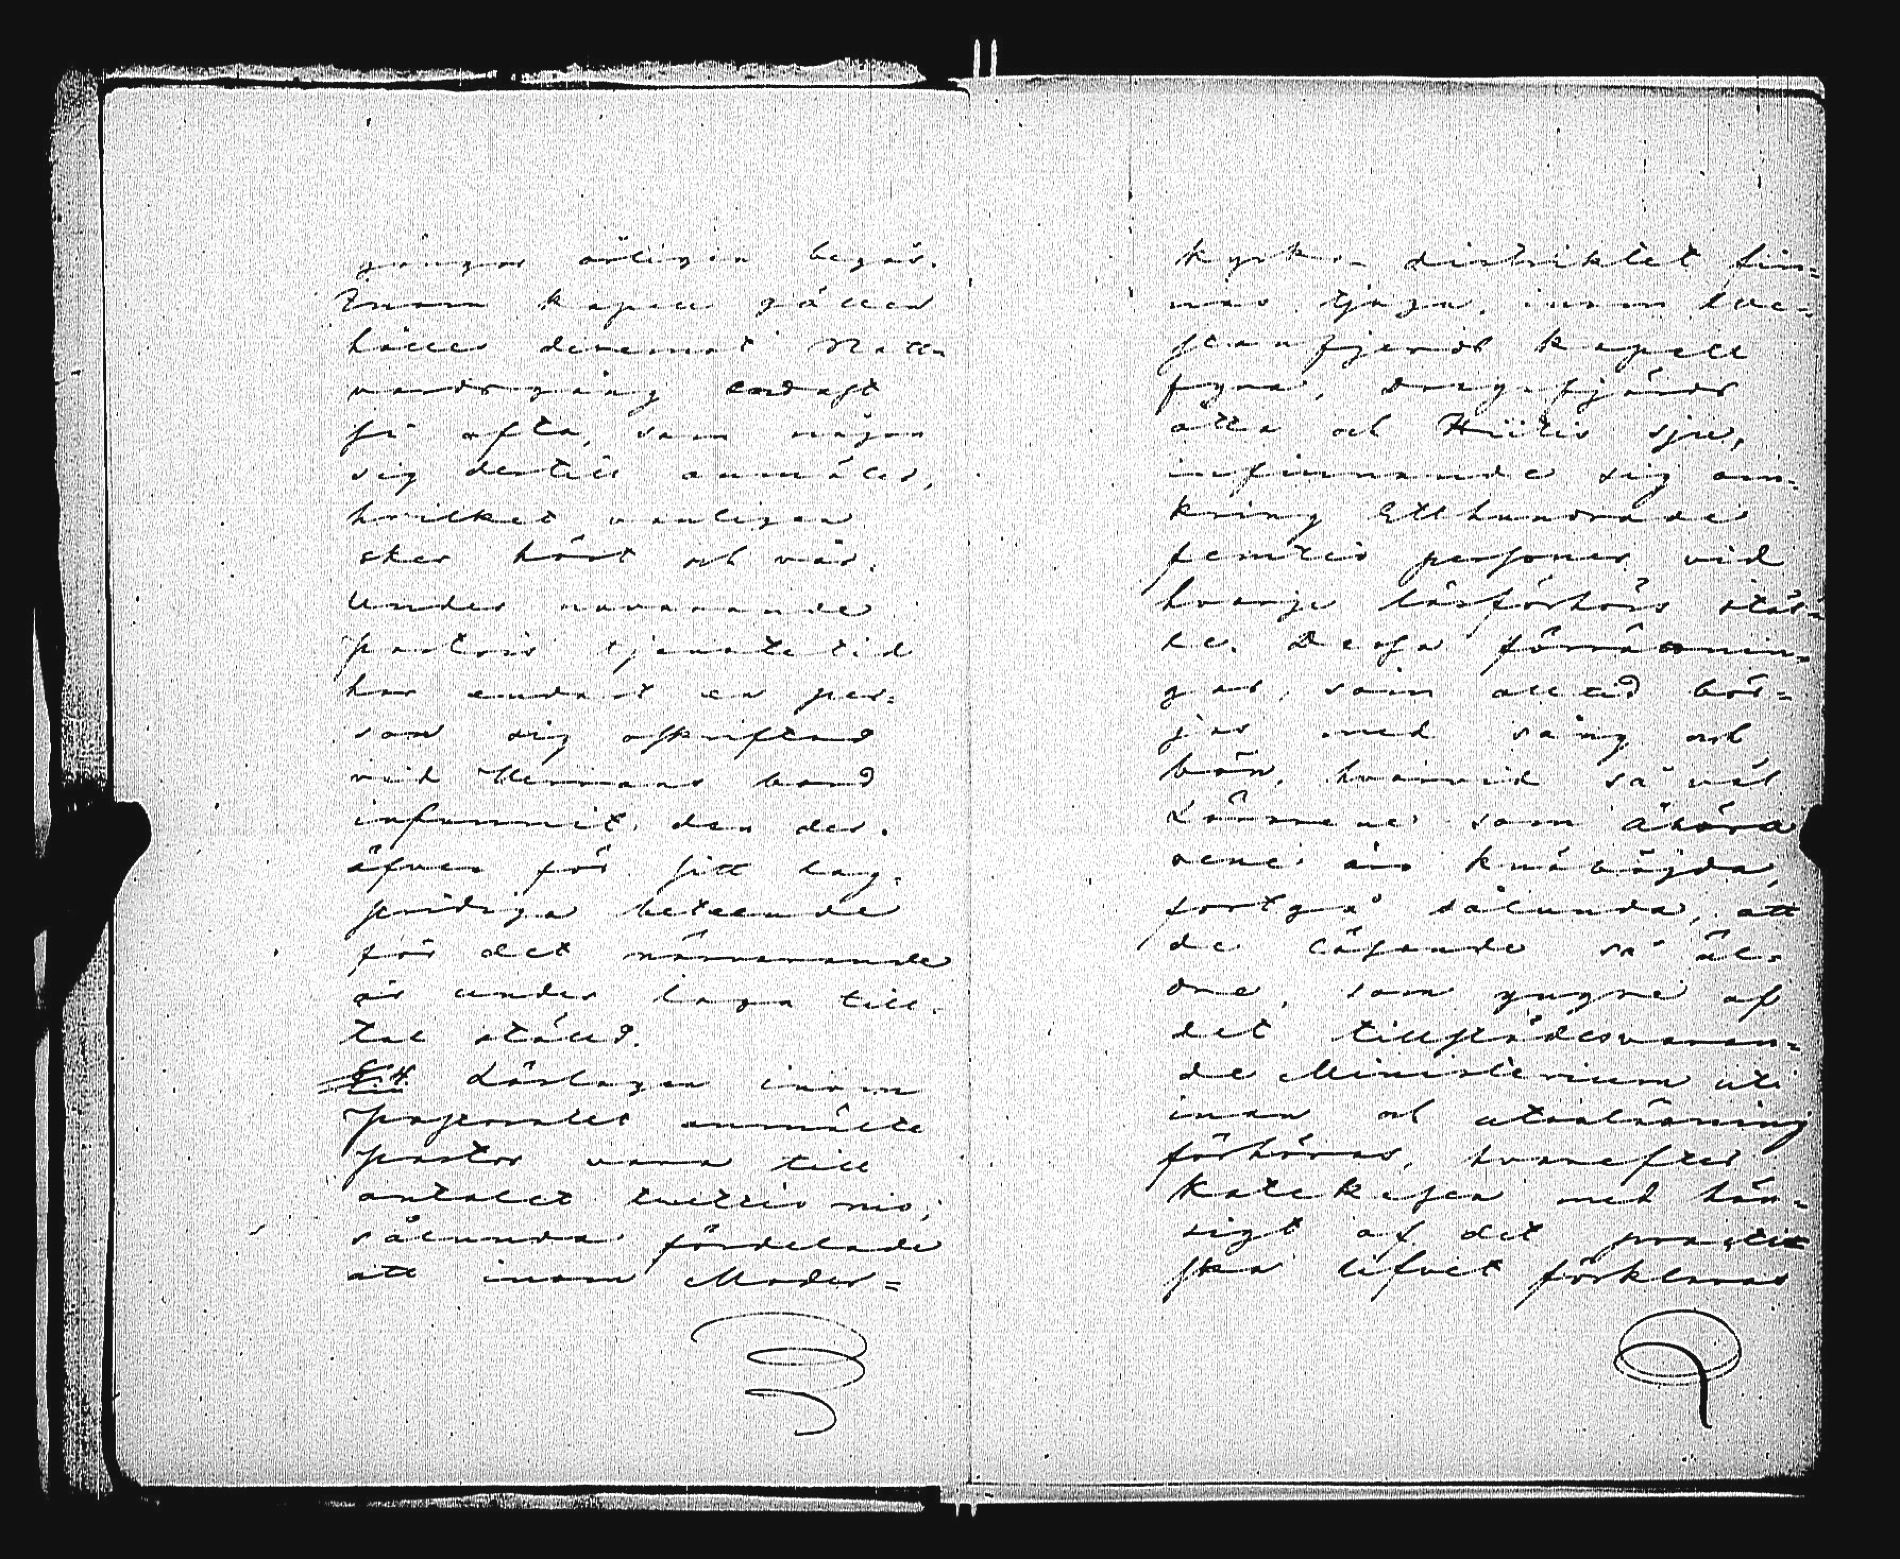 gånger årligen begås.
Inom kapell gällen
hålles deremot Natt-
vardsgång endast
så ofta, som någon
sig dertill anmäler,
hvilket vanligen
sker höst och vår.
Under nuvarande
pastors tjenstetid
har endast en per=
son sig oskriftad
vid Herrans bord
infunnit, den der.
äfven för sitt lag-
stridiga beteende
för det närvarande
är under laga till-
tal ställd.
Läslagen inom
Pastoratet anmälte
Pastor vara till
antalet tjuttio nio;
sålunda fördelade
att inom Moder=
kyrko distriktet fin=
nas tjugu, inom
fjerds kapell
fyra, Dragsfjärds
åtta och Hiitis sju,
infinnande sig om-
kring Etthundrade
femtio personer vid
hvarje läsförhörs stäl=
le. Dessa förrättnin=
gar, som alltid bör=
jas med sång och
bön, hvarvid så väl
Lärarene som åhöra
rene äro knäböjda,
fortgå sålunda, att
de läsande så äl=
dre, som yngre af
det tillstädesvaran=
de Ministerium uti
innan och utanläsning
förhöras, hvarefter
Katekesen med hän=
sigt af det practi
ska lifvet förklaras